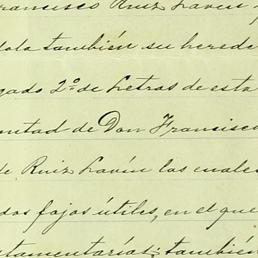 Francisco Ruiz Lavin
dola también su herede
gado 2º de Letras de esta
ontad de Don Francisco
de Ruiz Lavín las cuales
dos fojas útiles, en el que
stamentarías; también